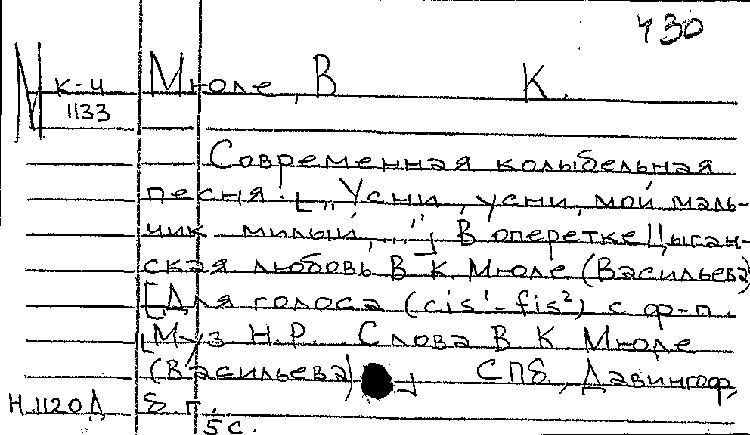 430
М к-ч Мюле, В К.
1133
Современная колыбельная
песня. [„Усни, усни, мой маль-
чик милый,..."] В оперетке Цыган-
ская любовь В К Мюле (Васильева)
[Для голоса (cis¹-fis²) с ф-п.
[Муз Н.Р. Слова В К Мюле
(Васильева)] СПб, Давингоф,
Н.1120Д б г.
5 с.